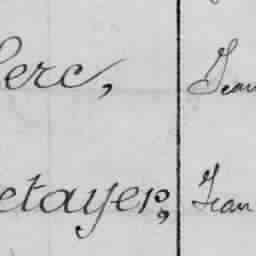 lerc, Jean
etayer, Jean